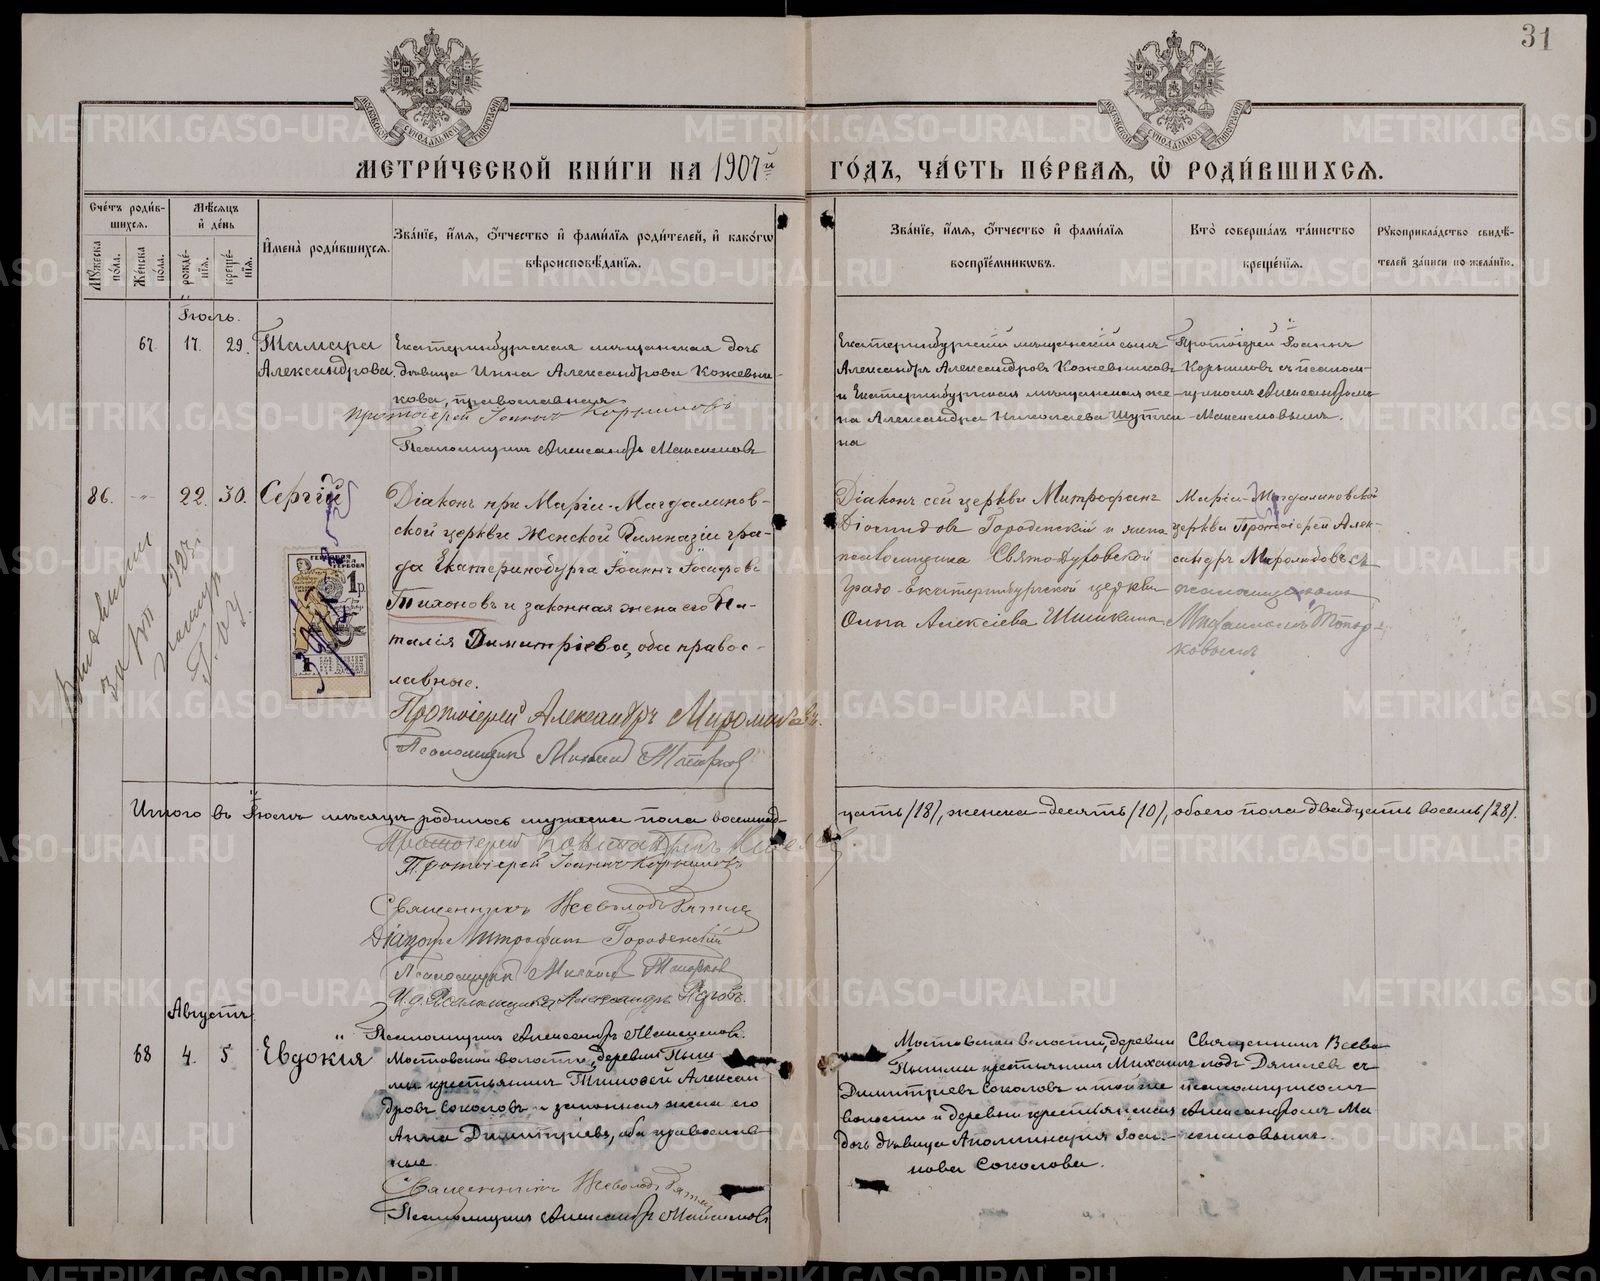 31
МЕТРИ́ЧЕСКОЙ КНИ́ГИ НА 1907й ГО́ДЪ, ЧА́СТЬ ПЕ́РВАЯ, Ѽ РОДИ́ВШИХСѦ.
Сче́тъ роди́в-
шихсѧ.
Мꙋ́жеска по́ла.
Же́нска по́ла.
Мѣ́сѧцъ
и҆ де́нь
рожде́-
нїѧ.
креще́-
нїѧ.
И҆мена̀ роди́вшихсѧ.
Зва́нїе, и҆́мѧ, ѻ҆́тчество и҆ фами́лїѧ роди́телей, и҆ како́гѡ
вѣроисповѣ́данїѧ.
Зва́нїе, и҆́мѧ, ѻ҆́тчество и҆ фами́лїѧ
воспрїе́мникѡвъ.
Кто̀ соверша́лъ та́инство
креще́нїѧ.
Рꙋкоприкла́дство свидѣ́-
телей за́писи по жела́нїю.
Іюль.
67. 17. 29.
Тамара
Александрова.
Екатеринбургская мѣщанская дочь
дѣвица Инна Александрова Кожевни-
кова, православная
Протоіерей Іоаннъ Корниловъ
Псаломщикъ Александръ Максимовъ
Екатеринбургскій мѣщанскій сынъ
Александръ Александровъ Кожевниковъ
и Екатеринбургская мѣщанская же-
на Александра Николаева Шутки-
на
Протоіерей Іоаннъ
Корниловъ съ псалом-
щикомъ Александромъ
Максимовымъ.
86. -"- 22. 30. Сергій
Діаконъ при Маріи-Магдалинов-
ской церкви Женской Гимназіи гра-
да Екатеринбурга Іоаннъ Іосифовъ
Тихоновъ и законная жена его На-
талія Димитріева, оба правос-
лавные.
Протоіерей Александръ Миролюбовъ.
Псаломщикъ Михаилъ Топорковъ
1 р
Діаконъ сей церкви Митрофанъ
Діомидовъ Городенскій и жена
псаломщика Свято-Духовской
Градо-Екатеринбургской церкви
Ольга Алексіева Шишкина
Маріи-Магдалиновской
церкви Протоіерей Алек-
сандръ Миролюбовъ съ
псаломщикомъ
Михаиломъ Топор-
ковымъ
Итого въ Іюлѣ мѣсяцѣ родилось мужеска пола восемнад-
цать /18/, женска-десять /10/, обоего пола двадцать восемь /28/.
Протоіерей Іоаннъ Корниловъ
Священникъ Всеволодъ Дягилевъ
Діаконъ Митрофанъ Городенскій
Псаломщикъ Михаилъ Топорковъ
И. д. Псаломщика Александръ
Псаломщикъ Александръ Максимовъ.
Августъ
68 " 4. 5 Евдокія
Мостовской волости, деревни Пыш-
мы крестьянинъ Тимофей Алексан-
дровъ Соколовъ и законная жена его
Анна Димитріева, оба православ-
ные.
Священникъ Всеволодъ Дягилевъ
Псаломщикъ Александръ Максимовъ
Мостовской волости, деревни
Пышмы крестьянинъ Михаилъ
Димитріевъ Соколовъ и той же
волости и деревни крестьянская
дочь дѣвица Аполлинарія
нова Соколова.
Священникъ Всево-
лодъ Дягилевъ съ
псаломщикомъ
Александромъ Ма-
ксимовымъ.
METRIKI.GASO-URAL.RU